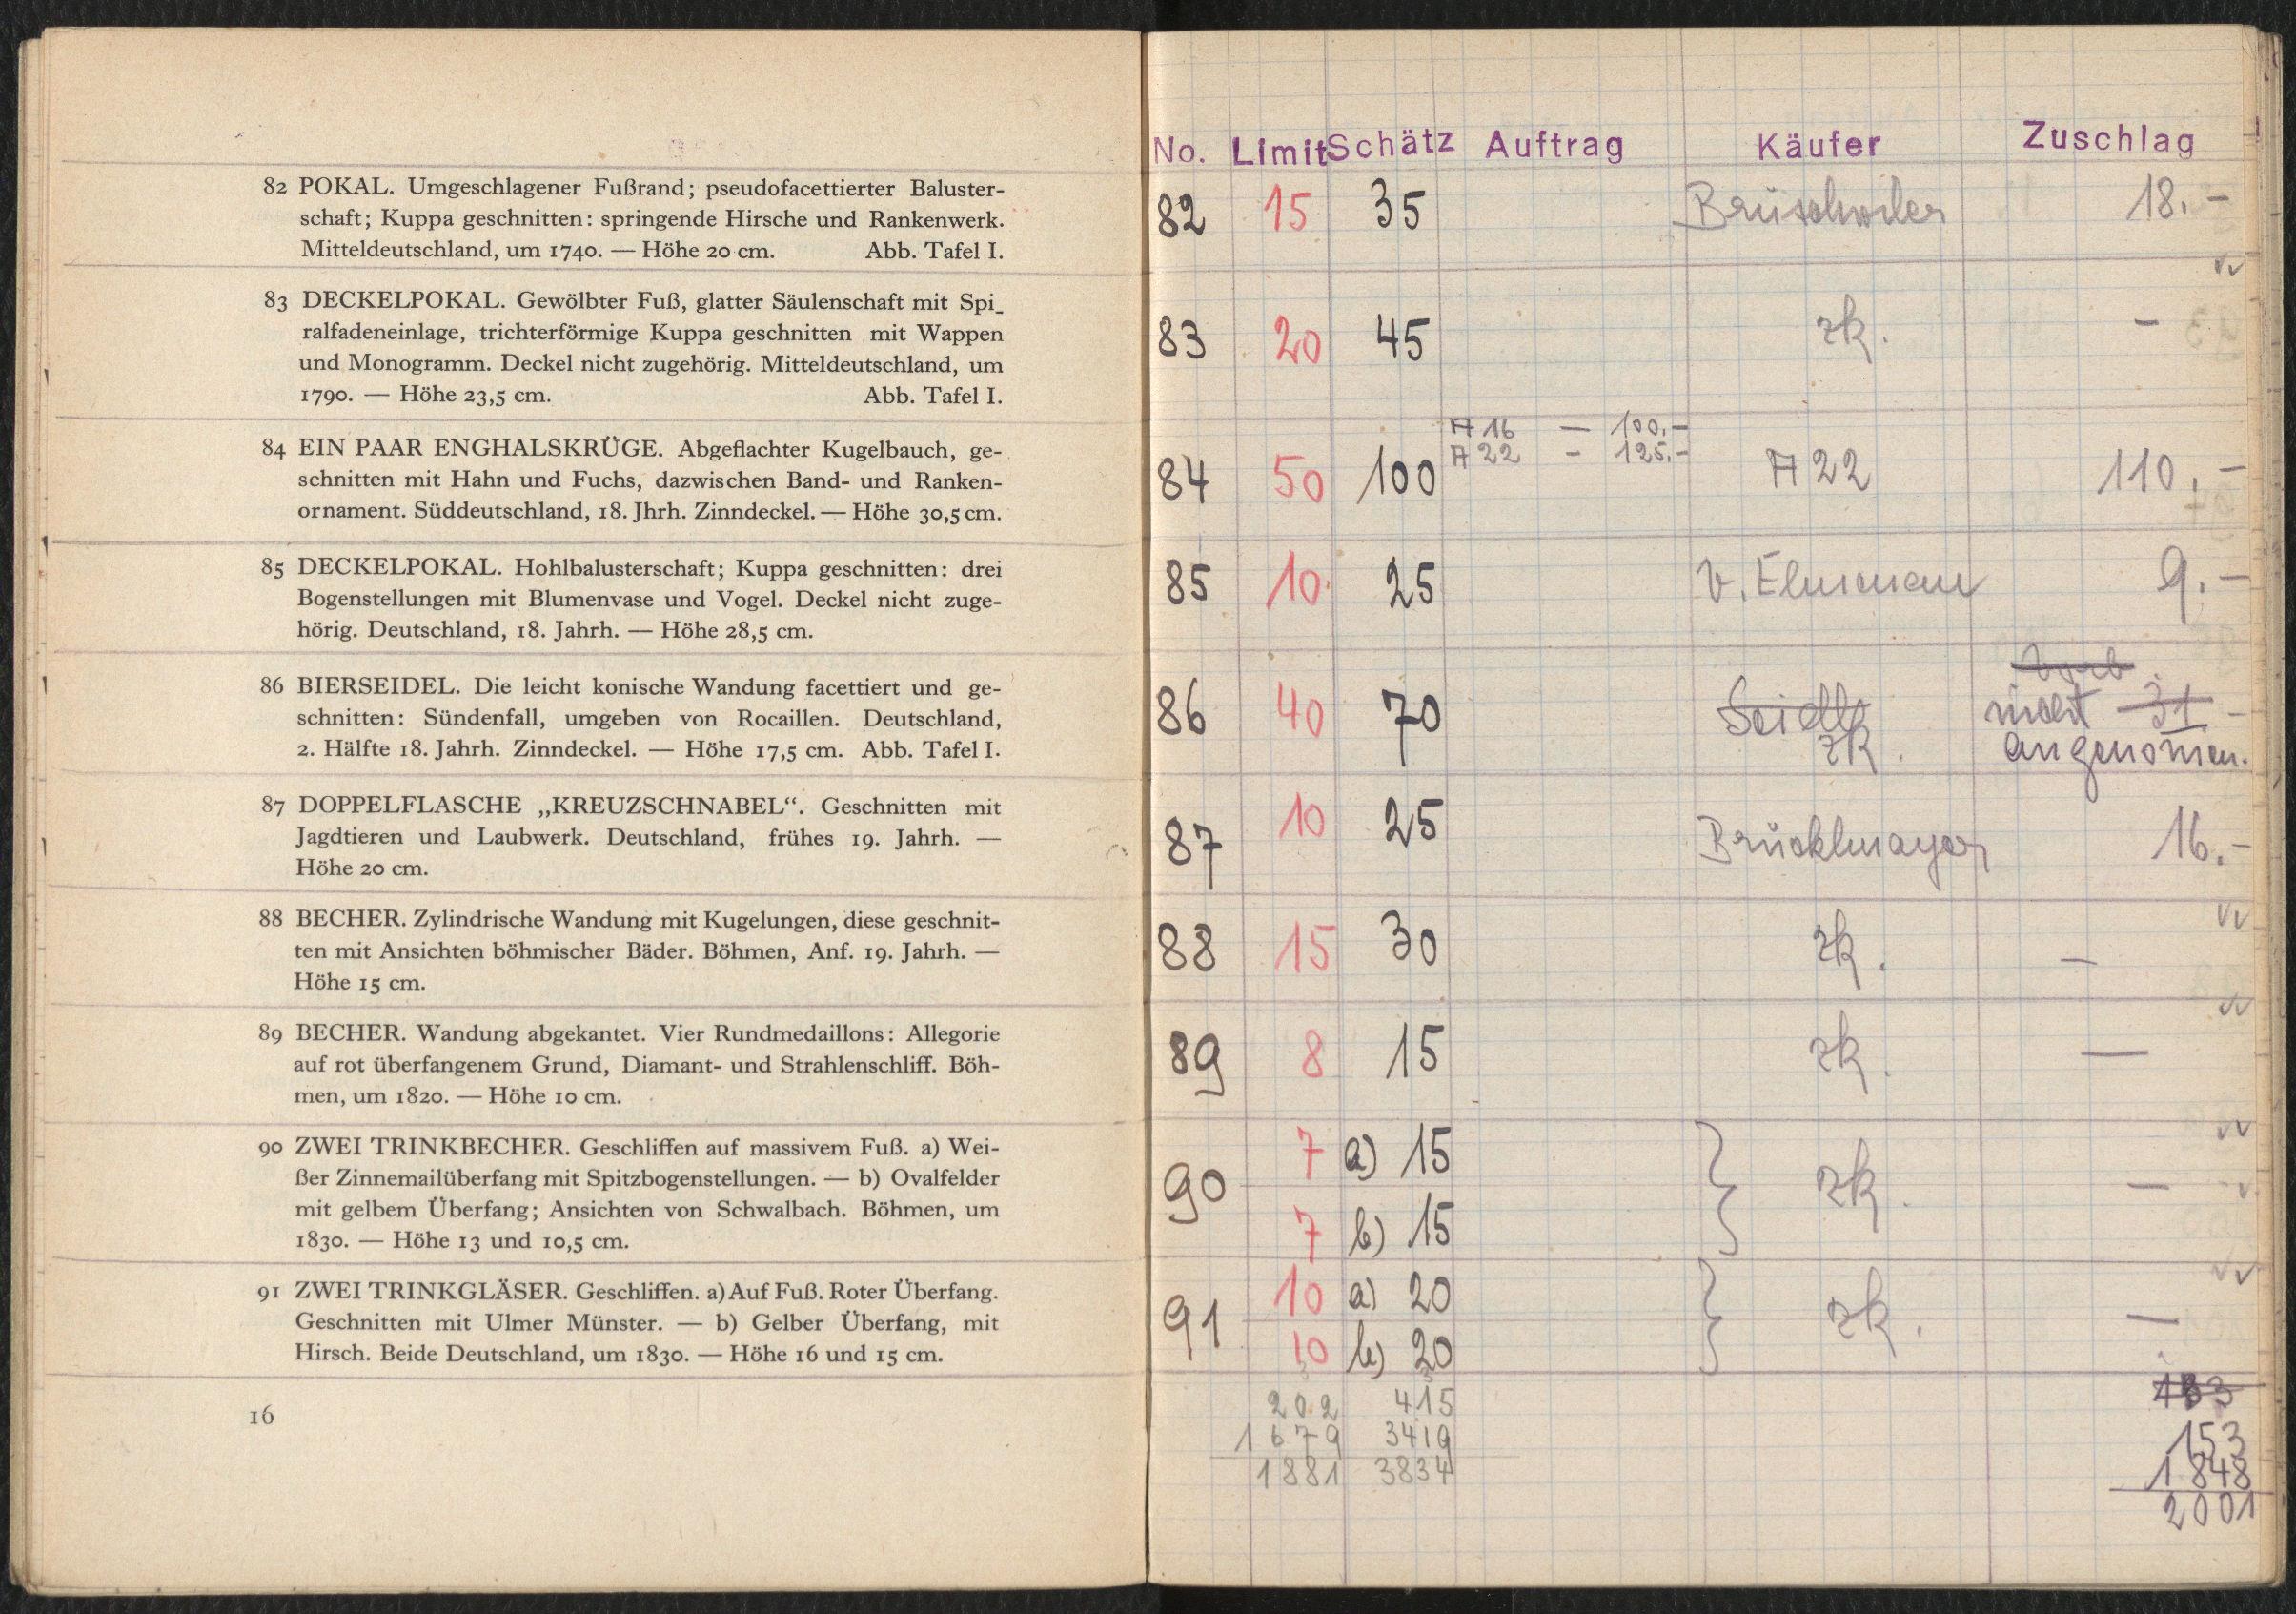 82 POKAL. Umgeschlagener Fußrand; pseudofacettierter Baluster-
schaft; Kuppa geschnitten: springende Hirsche und Rankenwerk.
Mitteldeutschland, um 1740. — Höhe 20 cm. Abb. Tafel I.
83 DECKELPOKAL. Gewölbter Fuß, glatter Säulenschaft mit Spi-
ralfadeneinlage, trichterförmige Kuppa geschnitten mit Wappen
und Monogramm. Deckel nicht zugehörig. Mitteldeutschland, um
1790. — Höhe 23,5 cm. Abb. Tafel I.
84 EIN PAAR ENGHALSKRÜGE. Abgeflachter Kugelbauch, ge-
schnitten mit Hahn und Fuchs, dazwischen Band- und Ranken-
ornament. Süddeutschland, 18. Jhrh. Zinndeckel. — Höhe 30,5 cm.
85 DECKELPOKAL. Hohlbalusterschaft; Kuppa geschnitten: drei
Bogenstellungen mit Blumenvase und Vogel. Deckel nicht zuge-
hörig. Deutschland, 18. Jahrh. — Höhe 28,5 cm.
86 BIERSEIDEL. Die leicht konische Wandung facettiert und ge-
schnitten: Sündenfall, umgeben von Rocaillen. Deutschland,
2. Hälfte 18. Jahrh. Zinndeckel. — Höhe 17,5 cm. Abb. Tafel I.
87 DOPPELFLASCHE „KREUZSCHNABEL“. Geschnitten mit
Jagdtieren und Laubwerk. Deutschland, frühes 19. Jahrh. —
Höhe 20 cm.
88 BECHER. Zylindrische Wandung mit Kugelungen, diese geschnit-
ten mit Ansichten böhmischer Bäder. Böhmen, Anf. 19. Jahrh. —
Höhe 15 cm.
89 BECHER. Wandung abgekantet. Vier Rundmedaillons: Allegorie
auf rot überfangenem Grund, Diamant- und Strahlenschliff. Böh-
men, um 1820. — Höhe 10 cm.
90 ZWEI TRINKBECHER. Geschliffen auf massivem Fuß. a) Wei-
ßer Zinnemailüberfang mit Spitzbogenstellungen. — b) Ovalfelder
mit gelbem Überfang; Ansichten von Schwalbach. Böhmen, um
1830. — Höhe 13 und 10,5 cm.
91 ZWEI TRINKGLÄSER. Geschliffen. a) Auf Fuß. Roter Überfang.
Geschnitten mit Ulmer Münster. — b) Gelber Überfang, mit
Hirsch. Beide Deutschland, um 1830. — Höhe 16 und 15 cm.
16
No. Limit Schätz Auftrag Käufer Zuschlag
82 15 35 Brüschwiler 18.–
83 20 45 zk. –
A 16 – 100.–
A 22 – 125.–
84 50 100 A 22 110.–
85 10 25 9.–
86 40 70 Seidl 31 –
nicht
zk. angenomen.
87 10 25 Brücklmayer 16.–
88 15 30 zk. –
89 8 15 zk. –
90 7 a) 15 zk. –
7 b) 15
91 10 a) 20 zk. –
10 b) 20
202 415 153
1679 3419 1848
1881 3834 2001